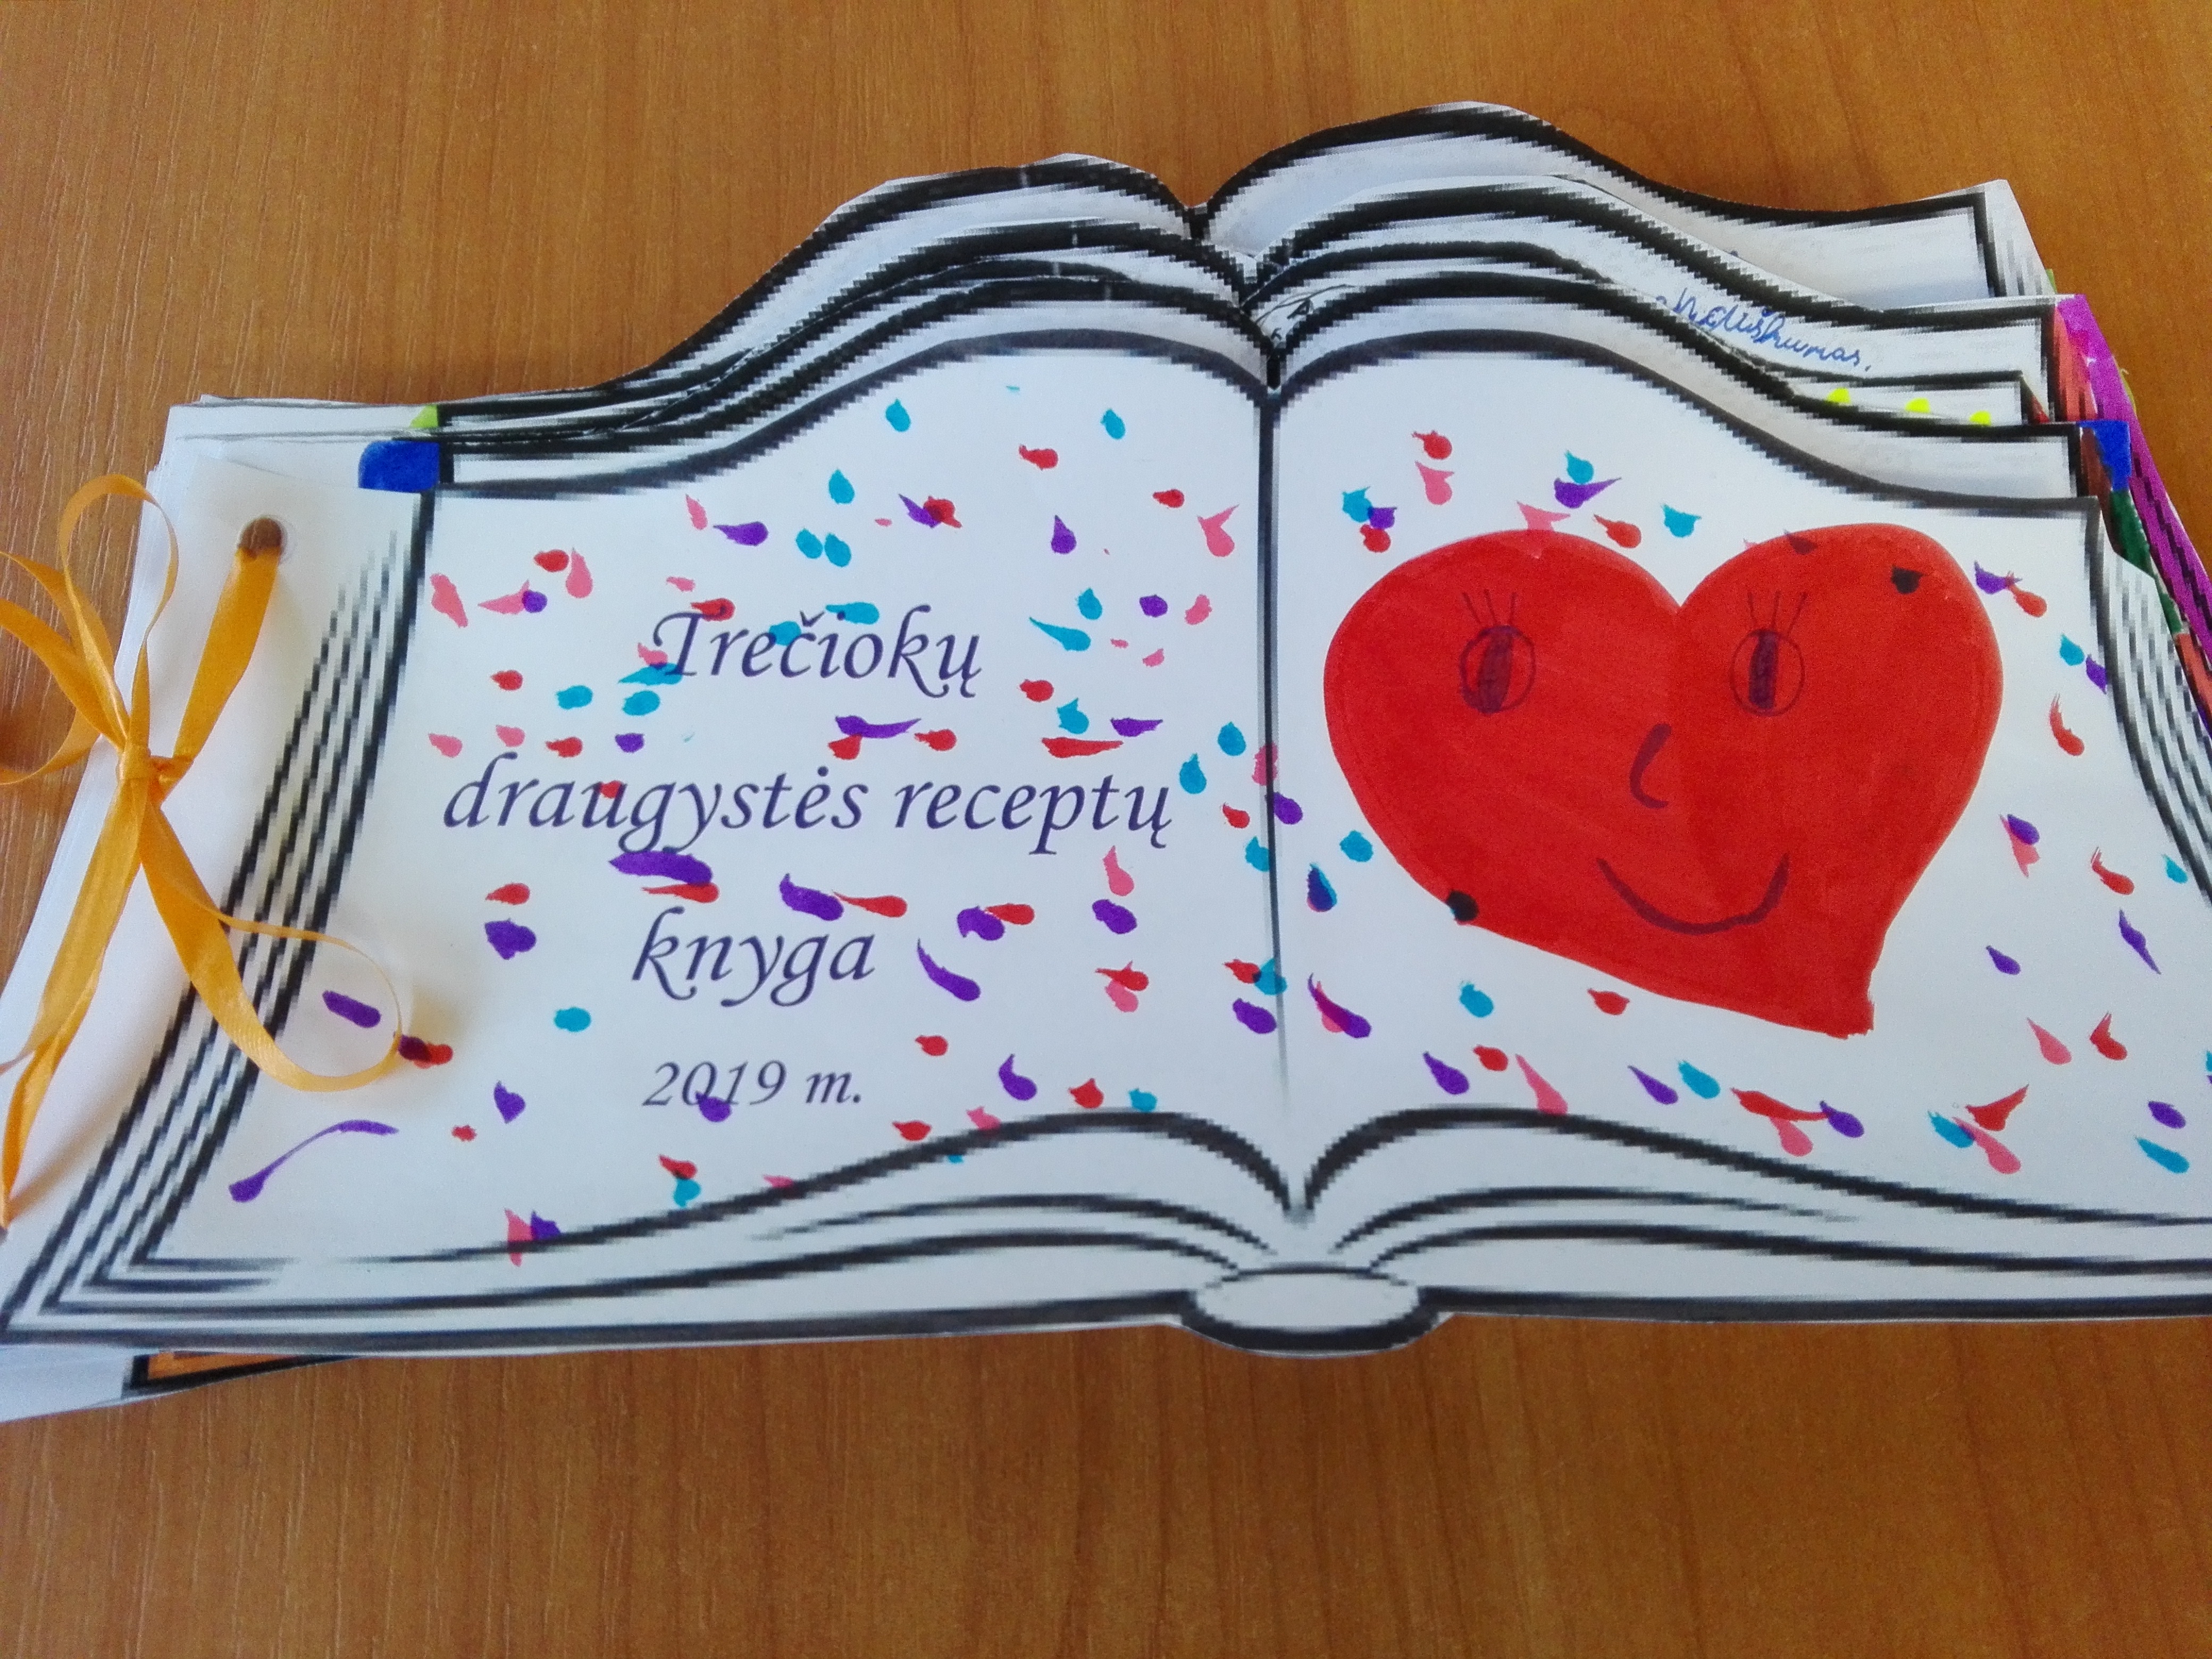 Trečiokų
draugystės receptų
knyga
2019 m.